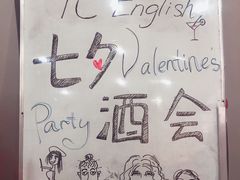 TC English
七夕 Valentine's
Party 酒会